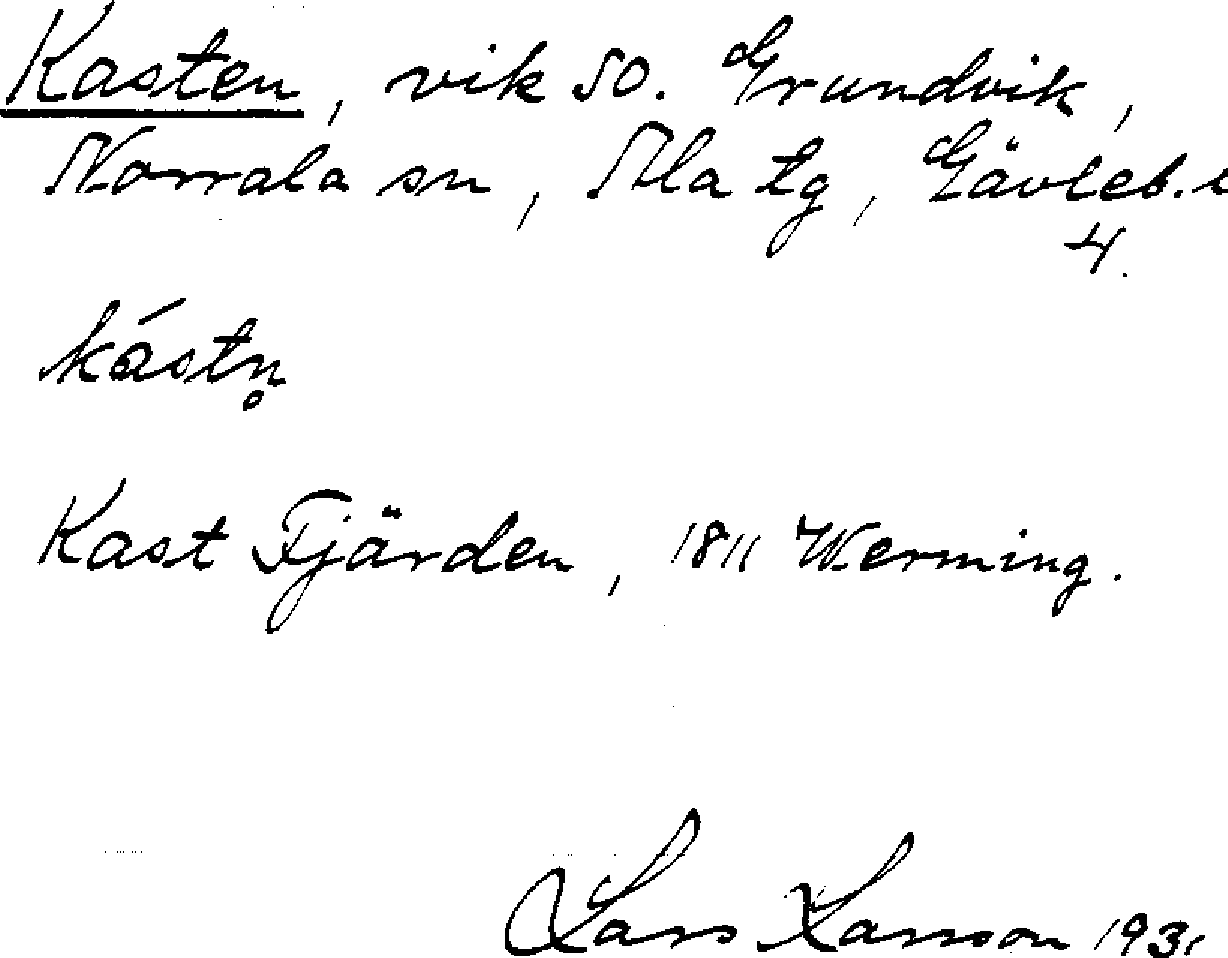 Kasten, vik SO. Grundvik,
Norrala sn, Ala tg, Gävleb. l
4.
kástn̥
Kast Fjärden, 1811 Werming.
Lars Larsson 1931